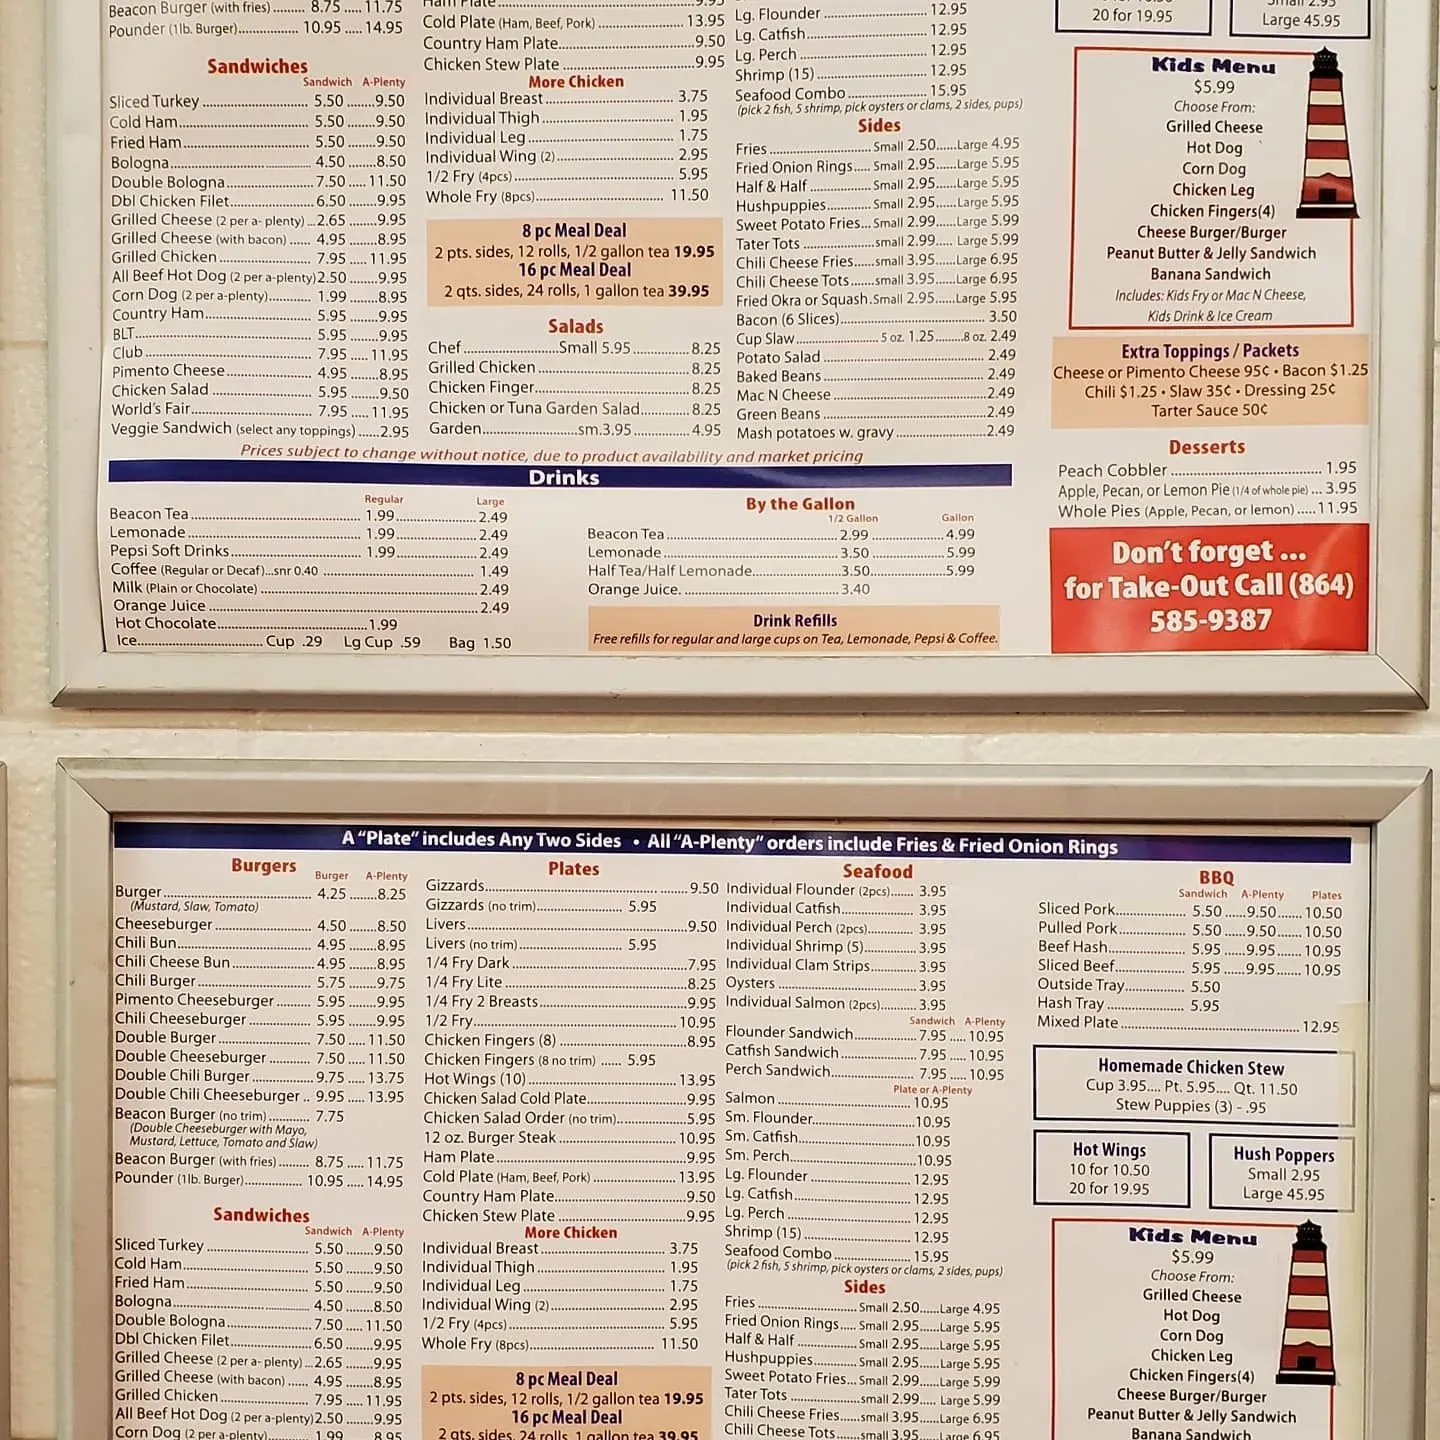 Beacon Burger (with fries) 8.75 ..... 11.75
Pounder (1lb. Burger) 10.95 ..... 14.95
Sandwiches
Sandwich A-Plenty
Sliced Turkey 5.50 ....... 9.50
Cold Ham 5.50 ....... 9.50
Fried Ham 5.50 ....... 9.50
Bologna 4.50 ..... 8.50
Double Bologna 7.50 ..... 11.50
Dbl Chicken Filet 6.50 ..... 9.95
Grilled Cheese (2 per a- plenty) ...2.65 ....... 9.95
Grilled Cheese (with bacon) 4.95 ....... 8.95
Grilled Chicken 7.95 ..... 11.95
All Beef Hot Dog (2 per a-plenty)2.50 ....... 9.95
Corn Dog (2 per a-plenty) 1.99 ....... 8.95
Country Ham 5.95 ....... 9.95
BLT 5.95 ....... 9.95
Club 7.95 ..... 11.95
Pimento Cheese 4.95 ..... 8.95
Chicken Salad 5.95 ..... 9.50
World's Fair 7.95 ..... 11.95
Veggie Sandwich (select any toppings) ......2.95
Cold Plate (Ham, Beef, Pork) 13.95
Country Ham Plate 9.50
Chicken Stew Plate 9.95
More Chicken
Individual Breast 3.75
Individual Thigh 1.95
Individual Leg 1.75
Individual Wing (2) 2.95
1/2 Fry (4pcs) 5.95
Whole Fry (8pcs) 11.50
8 pc Meal Deal
2 pts. sides, 12 rolls, 1/2 gallon tea 19.95
16 pc Meal Deal
2 qts. sides, 24 rolls, 1 gallon tea 39.95
Salads
Chef Small 5.95 8.25
Grilled Chicken 8.25
Chicken Finger 8.25
Chicken or Tuna Garden Salad 8.25
Garden sm.3.95 4.95
Lg. Flounder 12.95
Lg. Catfish 12.95
Lg. Perch 12.95
Shrimp (15) 12.95
Seafood Combo 15.95
(pick 2 fish, 5 shrimp, pick oysters or clams, 2 sides, pups)
Sides
Fries Small 2.50.....Large 4.95
Fried Onion Rings.... Small 2.95.....Large 5.95
Half & Half Small 2.95.....Large 5.95
Hushpuppies Small 2.95.....Large 5.95
Sweet Potato Fries... Small 2.99.....Large 5.99
Tater Tots small 2.99..... Large 5.99
Chili Cheese Fries.....small 3.95.....Large 6.95
Chili Cheese Tots.....small 3.95.....Large 6.95
Fried Okra or Squash.Small 2.95.....Large 5.95
Bacon (6 Slices) 3.50
Cup Slaw 5 oz. 1.25 ........8 oz. 2.49
Potato Salad 2.49
Baked Beans 2.49
Mac N Cheese 2.49
Green Beans 2.49
Mash potatoes w. gravy 2.49
Prices subject to change without notice, due to product availability and market pricing
20 for 19.95
Small 2.95
Large 45.95
Kids Menu
$5.99
Choose From:
Grilled Cheese
Hot Dog
Corn Dog
Chicken Leg
Chicken Fingers(4)
Cheese Burger/Burger
Peanut Butter & Jelly Sandwich
Banana Sandwich
Includes: Kids Fry or Mac N Cheese,
Kids Drink & Ice Cream
Extra Toppings / Packets
Cheese or Pimento Cheese 95¢ • Bacon $1.25
Chili $1.25 • Slaw 35¢ • Dressing 25¢
Tarter Sauce 50¢
Desserts
Peach Cobbler 1.95
Apple, Pecan, or Lemon Pie (1/4 of whole pie) ... 3.95
Whole Pies (Apple, Pecan, or lemon) .....11.95
Don't forget ...
for Take-Out Call (864)
585-9387
Drinks
Regular Large
Beacon Tea 1.99 2.49
Lemonade 1.99 2.49
Pepsi Soft Drinks 1.99 2.49
Coffee (Regular or Decaf)...snr 0.40 1.49
Milk (Plain or Chocolate) 2.49
Orange Juice 2.49
Hot Chocolate 1.99
Ice Cup .29 Lg Cup .59 Bag 1.50
By the Gallon
1/2 Gallon Gallon
Beacon Tea 2.99 4.99
Lemonade 3.50 5.99
Half Tea/Half Lemonade 3.50 5.99
Orange Juice. 3.40
Drink Refills
Free refills for regular and large cups on Tea, Lemonade, Pepsi & Coffee.
A "Plate" includes Any Two Sides • All "A-Plenty" orders include Fries & Fried Onion Rings
Burgers
Burger A-Plenty
Burger 4.25 ....... 8.25
(Mustard, Slaw, Tomato)
Cheeseburger 4.50 ..... 8.50
Chili Bun 4.95 ..... 8.95
Chili Cheese Bun 4.95 ..... 8.95
Chili Burger 5.75 ..... 9.75
Pimento Cheeseburger 5.95 ..... 9.95
Chili Cheeseburger 5.95 ..... 9.95
Double Burger 7.50 ..... 11.50
Double Cheeseburger 7.50 ..... 11.50
Double Chili Burger 9.75 ..... 13.75
Double Chili Cheeseburger .. 9.95 ..... 13.95
Beacon Burger (no trim) 7.75
(Double Cheeseburger with Mayo,
Mustard, Lettuce, Tomato and Slaw)
Beacon Burger (with fries) 8.75 ..... 11.75
Pounder (1lb. Burger) 10.95 ..... 14.95
Sandwiches
Sandwich A-Plenty
Sliced Turkey 5.50 ....... 9.50
Cold Ham 5.50 ....... 9.50
Fried Ham 5.50 ....... 9.50
Bologna 4.50 ..... 8.50
Double Bologna 7.50 ..... 11.50
Dbl Chicken Filet 6.50 ..... 9.95
Grilled Cheese (2 per a- plenty) ...2.65 ....... 9.95
Grilled Cheese (with bacon) 4.95 ....... 8.95
Grilled Chicken 7.95 ..... 11.95
All Beef Hot Dog (2 per a-plenty)2.50 ....... 9.95
Corn Dog (2 per a-plenty) 1.99 8.95
Plates
Gizzards 9.50
Gizzards (no trim) 5.95
Livers 9.50
Livers (no trim) 5.95
1/4 Fry Dark 7.95
1/4 Fry Lite 8.25
1/4 Fry 2 Breasts 9.95
1/2 Fry 10.95
Chicken Fingers (8) 8.95
Chicken Fingers (8 no trim) 5.95
Hot Wings (10) 13.95
Chicken Salad Cold Plate 9.95
Chicken Salad Order (no trim) 5.95
12 oz. Burger Steak 10.95
Ham Plate 9.95
Cold Plate (Ham, Beef, Pork) 13.95
Country Ham Plate 9.50
Chicken Stew Plate 9.95
More Chicken
Individual Breast 3.75
Individual Thigh 1.95
Individual Leg 1.75
Individual Wing (2) 2.95
1/2 Fry (4pcs) 5.95
Whole Fry (8pcs) 11.50
8 pc Meal Deal
2 pts. sides, 12 rolls, 1/2 gallon tea 19.95
16 pc Meal Deal
2 qts. sides, 24 rolls, 1 gallon tea 39.95
Seafood
Individual Flounder (2pcs) 3.95
Individual Catfish 3.95
Individual Perch (2pcs) 3.95
Individual Shrimp (5) 3.95
Individual Clam Strips 3.95
Oysters 3.95
Individual Salmon (2pcs) 3.95
Sandwich A-Plenty
Flounder Sandwich 7.95 ..... 10.95
Catfish Sandwich 7.95 ..... 10.95
Perch Sandwich 7.95 ..... 10.95
Plate or A-Plenty
Salmon 10.95
Sm. Flounder 10.95
Sm. Catfish 10.95
Sm. Perch 10.95
Lg. Flounder 12.95
Lg. Catfish 12.95
Lg. Perch 12.95
Shrimp (15) 12.95
Seafood Combo 15.95
(pick 2 fish, 5 shrimp, pick oysters or clams, 2 sides, pups)
Sides
Fries Small 2.50.....Large 4.95
Fried Onion Rings.... Small 2.95.....Large 5.95
Half & Half Small 2.95.....Large 5.95
Hushpuppies Small 2.95.....Large 5.95
Sweet Potato Fries... Small 2.99.....Large 5.99
Tater Tots small 2.99..... Large 5.99
Chili Cheese Fries.....small 3.95.....Large 6.95
Chili Cheese Tots.....small 3.95.....Large 6.95
BBQ
Sandwich A-Plenty Plates
Sliced Pork 5.50 .....9.50...... 10.50
Pulled Pork 5.50 .....9.50...... 10.50
Beef Hash 5.95 .....9.95...... 10.95
Sliced Beef 5.95 .....9.95...... 10.95
Outside Tray 5.50
Hash Tray 5.95
Mixed Plate 12.95
Homemade Chicken Stew
Cup 3.95.... Pt. 5.95.... Qt. 11.50
Stew Puppies (3) - .95
Hot Wings
10 for 10.50
20 for 19.95
Hush Poppers
Small 2.95
Large 45.95
Kids Menu
$5.99
Choose From:
Grilled Cheese
Hot Dog
Corn Dog
Chicken Leg
Chicken Fingers(4)
Cheese Burger/Burger
Peanut Butter & Jelly Sandwich
Banana Sandwich